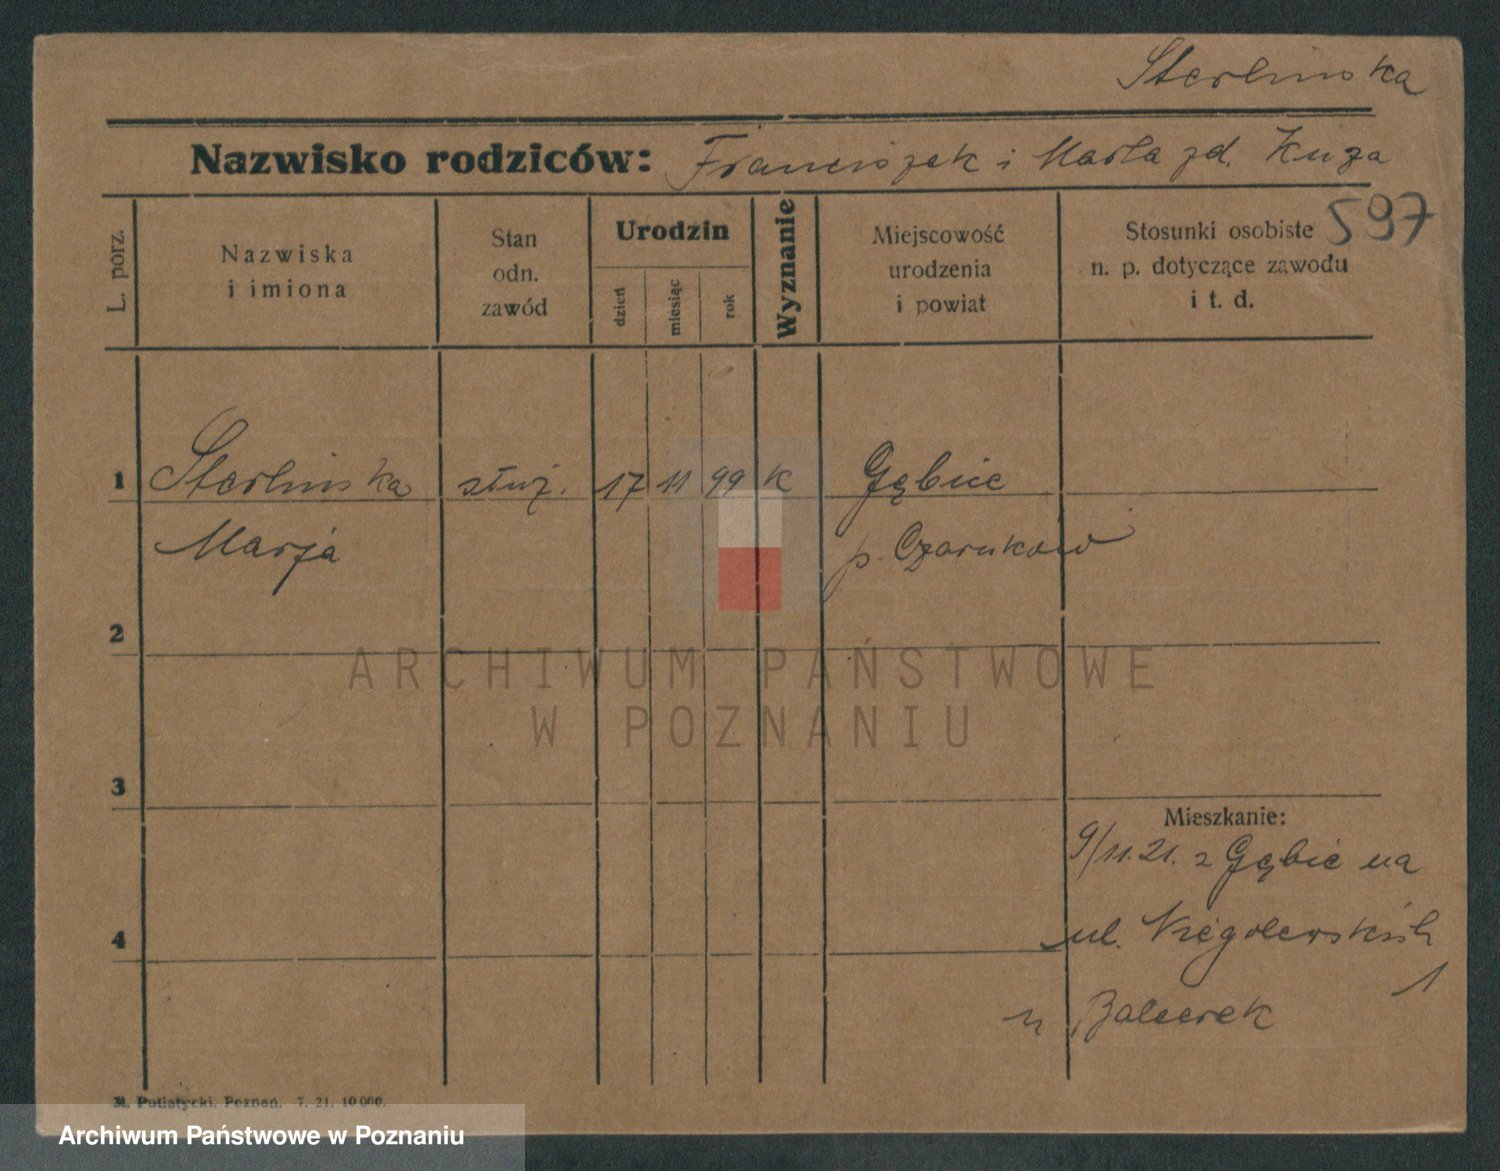 Sterlinska
Nazwisko rodziców: Franciszek i Marta zd. Kuza
597
L. porz.
Nazwiska
i imiona
Stan
odn.
zawód
Urodzin
dzień
miesiąc
rok
Wyznanie
Miejscowość
urodzenia
i powiat
Stosunki osobiste
n. p. dotyczące zawodu
i t. d.
1 Sterlinska służ. 17 11 99 k Gębice
Marja p. Czarnków
2
ARCHIWUM PAŃSTWOWE
W POZNANIU
3
Mieszkanie:
9/11.21. z Gębic na
4
ul. Niegolewskich
1
u Balcerek
M. Putiatycki. Poznań. 7. 21. 10 000.
Archiwum Państwowe w Poznaniu